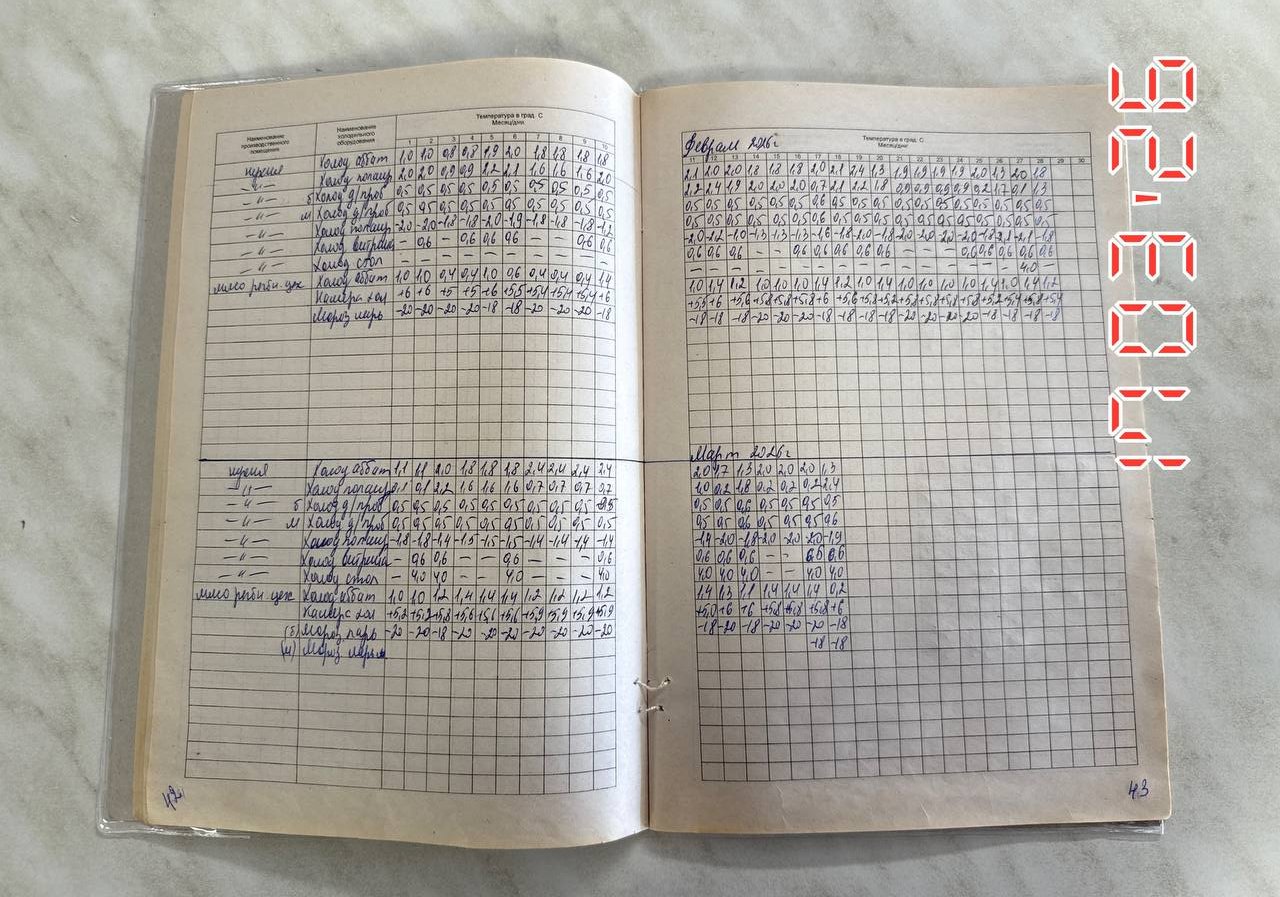 Наименование производственного помещения
Наименование холодильного оборудования
Температура в град. С
Месяц/дни
1 2 3 4 5 6 7 8 9 10
кухня Холод аббат 1,0 1,0 0,8 0,8 1,9 2,0 1,8 1,8 1,8 1,8
—"— Холод 2,0 2,0 0,9 0,9 2,2 2,1 1,6 1,6 1,6 2,0
—"— б Холод д/проб 0,5 0,5 0,5 0,5 0,5 0,5 0,5 0,5 0,5 0,5
—"— м Холод д/проб 0,5 0,5 0,5 0,5 0,5 0,5 0,5 0,5 0,5 0,5
—"— Холод -20 -20 -18 -18 -20 -19 -18 -18 -18 -1,2
—"— Холод витрина — 0,6 — 0,6 0,6 0,6 — — 0,6 0,6
—"— Холод стол — — — — — — — — — —
мясо рыбн. цех Холод аббат 1,0 1,0 0,4 0,4 1,0 0,6 0,4 0,4 0,4 1,4
Камера хол +6 +6 +5 +5 +6 +5,5 +5,4 +5,4 +5,4 +6
Мороз ларь -20 -20 -20 -20 -18 -18 -20 -20 -20 -18
кухня Холод аббат 1,1 1,1 2,0 1,8 1,8 1,8 2,4 2,4 2,4 2,4
—"— Холод 0,1 0,1 2,2 1,6 1,6 1,6 0,7 0,7 0,7 0,7
—"— б Холод д/проб 0,5 0,5 0,5 0,5 0,5 0,5 0,5 0,5 0,5 0,5
—"— м Холод д/проб 0,5 0,5 0,5 0,5 0,5 0,5 0,5 0,5 0,5 0,5
—"— Холод -1,8 -1,8 -1,4 -1,5 -1,5 -1,5 -1,4 -1,4 -1,4 -1,4
—"— Холод витрина — 0,6 0,6 — — 0,6 — — — 0,6
—"— Холод стол — 4,0 4,0 — — 4,0 — — — 4,0
мясо рыбн. цех Холод аббат 1,0 1,0 1,2 1,4 1,4 1,4 1,2 1,2 1,2 1,2
Камера хол +5,2 +5,2 +5,8 +5,6 +5,6 +5,6 +5,9 +5,9 +5,9 +5,9
(б) Мороз ларь -20 -20 -18 -20 -20 -20 -20 -20 -20 -20
(м) Мороз ларь
42
Температура в град. С
Месяц/дни
Февраль 2026г
11 12 13 14 15 16 17 18 19 20 21 22 23 24 25 26 27 28 29 30
2,1 2,0 2,0 1,8 1,8 1,8 2,0 2,1 2,4 1,3 1,9 1,9 1,9 1,9 2,0 1,3 2,0 1,8
2,2 2,4 1,9 2,0 2,0 2,0 0,7 2,1 2,2 1,8 0,9 0,9 0,9 0,9 0,2 1,7 0,1 1,3
0,5 0,5 0,5 0,5 0,5 0,5 0,6 0,5 0,5 0,5 0,5 0,5 0,5 0,5 0,5 0,5 0,5 0,5
0,5 0,5 0,5 0,5 0,5 0,5 0,6 0,5 0,5 0,5 0,5 0,5 0,5 0,5 0,5 0,5 0,5 0,5
-2,0 -2,2 -1,0 -1,3 -1,3 -1,3 -1,6 -1,8 -2,0 -1,8 -2,0 -2,0 -2,0 -2,0 -1,8 -2,2 -2,1 -1,8
0,6 0,6 0,6 — — 0,6 0,6 0,6 0,6 0,6 — — — 0,6 0,6 0,6 0,6 0,6
— — — — — — — — — — — — — — — — 4,0 —
1,0 1,4 1,2 1,0 1,0 1,0 1,4 1,2 1,0 1,4 1,0 1,0 1,0 1,0 1,4 1,0 1,4 1,2
+5,5 +6 +5,6 +5,8 +5,8 +5,8 +6 +5,6 +5,8 +5,2 +5,8 +5,8 +5,8 +5,8 +5,2 +5,4 +5,8 +5,4
-18 -18 -18 -20 -20 -20 -18 -18 -18 -18 -20 -20 -20 -20 -18 -18 -18 -18
Март 2026г
2,0 1,7 1,3 2,0 2,0 2,0 1,3
1,0 0,2 1,8 0,2 0,2 0,2 2,4
0,5 0,5 0,6 0,5 0,5 0,5 0,5
0,5 0,5 0,6 0,5 0,5 0,5 0,6
-1,4 -2,0 -1,8 -2,0 -2,0 -2,0 -1,9
0,6 0,6 0,6 — — 0,6 0,6
4,0 4,0 4,0 — — 4,0 4,0
1,4 1,3 1,1 1,4 1,4 1,4 0,2
+5,0 +6 +6 +5,8 +5,8 +5,8 +6
-18 -20 -18 -20 -20 -20 -18
-18 -18
43